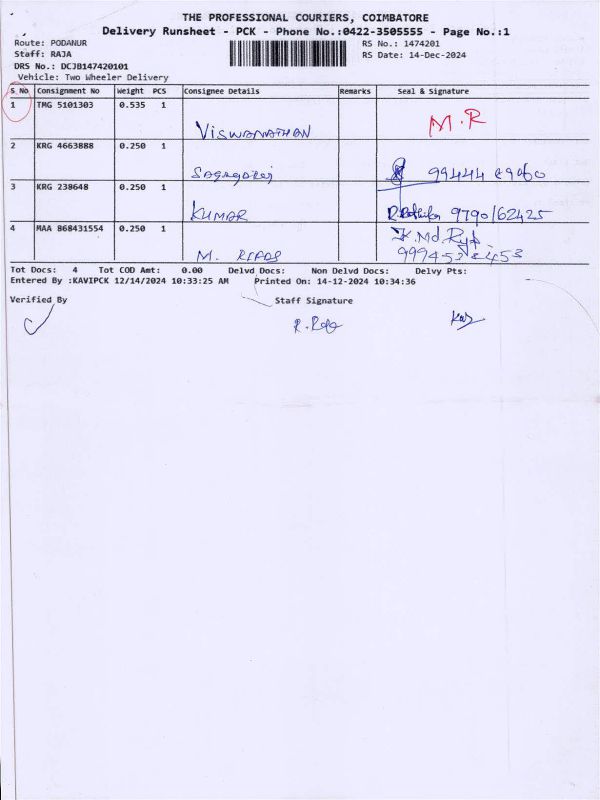 THE PROFESSIONAL COURIERS, COIMBATORE
Delivery Runsheet - PCK - Phone No.:0422-3505555 - Page No.:1
Route: PODANUR
Staff: RAJA
DRS No.: DCJB147420101
Vehicle: Two Wheeler Delivery
RS No.: 1474201
RS Date: 14-Dec-2024
S No Consignment No Weight PCS Consignee Details Remarks Seal & Signature
1 TMG 5101303 0.535 1 VISWANATHAN M.R
2 KRG 4663888 0.250 1
3 KRG 238648 0.250 1 KUMAR 9790162425
4 MAA 868431554 0.250 1 M.
Tot Docs: 4 Tot COD Amt: 0.00 Delvd Docs: Non Delvd Docs: Delvy Pts:
Entered By :KAVIPCK 12/14/2024 10:33:25 AM Printed On: 14-12-2024 10:34:36
Verified By Staff Signature